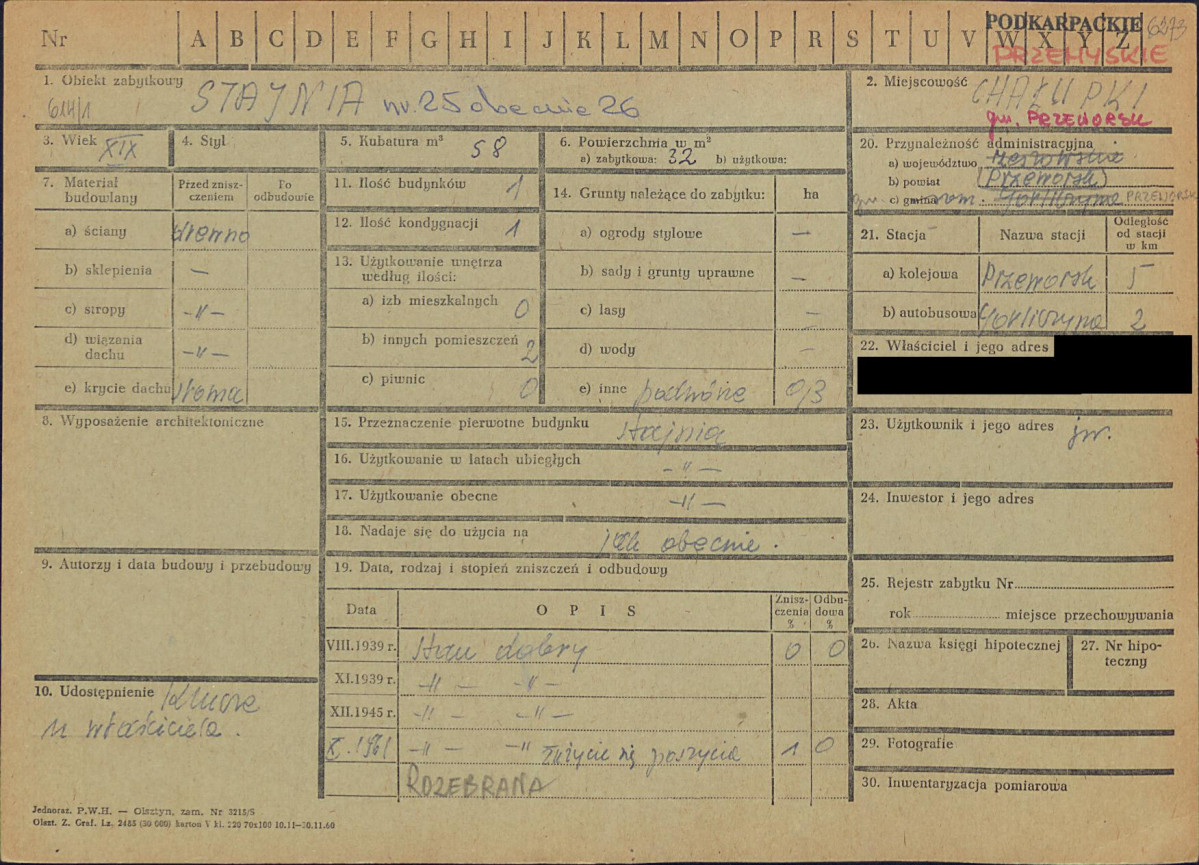 Nr A B C D E F G H I J K L M N O P R S T U V W X Y Z
PODKARPACKIE 6273
PRZEMYSKIE
1. Obiekt zabytkowy STAJNIA nr. 25 obecnie 26
614/1
2. Miejscowość CHAŁUPKI
gm. PRZEWORSK
3. Wiek XIX
4. Styl
5. Kubatura m³ 58
6. Powierzchnia w m²
a) zabytkowa: 32 b) użytkowa:
20. Przynależność administracyjna
a) województwo rzeszowskie
b) powiat (Przeworsk)
c) gmina Gorliczyna PRZEWORSK
7. Materiał budowlany
Przed zniszczeniem
Po odbudowie
a) ściany drewno
b) sklepienia —
c) stropy -"-
d) wiązania dachu -"-
e) krycie dachu słoma
11. Ilość budynków 1
12. Ilość kondygnacji 1
13. Użytkowanie wnętrza
według ilości:
a) izb mieszkalnych 0
b) innych pomieszczeń 2
c) piwnic 0
14. Grunty należące do zabytku: ha
a) ogrody stylowe —
b) sady i grunty uprawne —
c) lasy —
d) wody —
e) inne podwórze 0/3
21. Stacja
Nazwa stacji
Odległość od stacji w km
a) kolejowa Przeworsk 5
b) autobusowa Gorliczyna 2
22. Właściciel i jego adres
8. Wyposażenie architektoniczne
15. Przeznaczenie pierwotne budynku stajnia
16. Użytkowanie w latach ubiegłych -"-
17. Użytkowanie obecne -"-
18. Nadaje się do użycia na jak obecnie.
23. Użytkownik i jego adres jw.
24. Inwestor i jego adres
9. Autorzy i data budowy i przebudowy
19. Data, rodzaj i stopień zniszczeń i odbudowy
Data OPIS Zniszczenia % Odbudowa %
VIII.1939 r. Stan dobry 0 0
XI.1939 r. -"- -"-
XII.1945 r. -"- -"-
X. 1961 -"- -"- zużycie się poszycia 1 0
ROZEBRANA
10. Udostępnienie Klucze
u właściciela.
25. Rejestr zabytku Nr
rok miejsce przechowywania
26. Nazwa księgi hipotecznej
27. Nr hipoteczny
28. Akta
29. Fotografie
30. Inwentaryzacja pomiarowa
Jednoraz. P.W.H. — Olsztyn, zam. Nr 3215/S
Olszt. Z. Graf. Lz. 2485 (30 000) karton V kl. 220 70x100 10.11—30.11.60